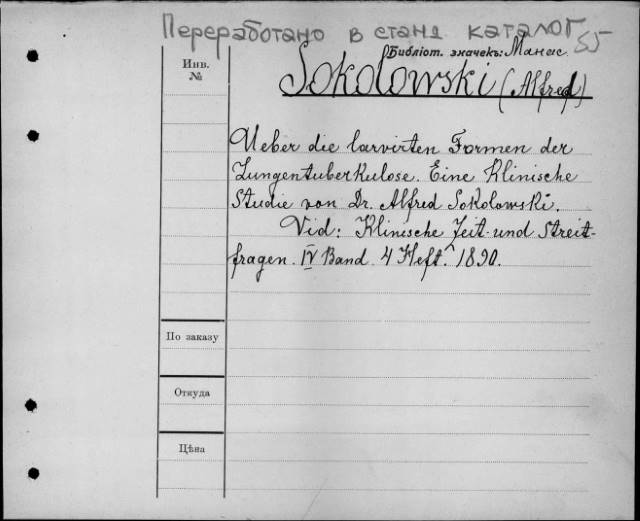 Переработано в станд каталог 55
Библіот. значекъ:
Инв.
№
Sokolowski (Alfred)
Ueber die larvirten Formen der
Lungentuberkulose. Eine Klinische
Studie von Dr. Alfred Sokolowski.
Vid: Klinische Zeit- und Streit-
fragen. IV Band. 4 Heft. 1890.
По заказу
Откуда
Цѣна